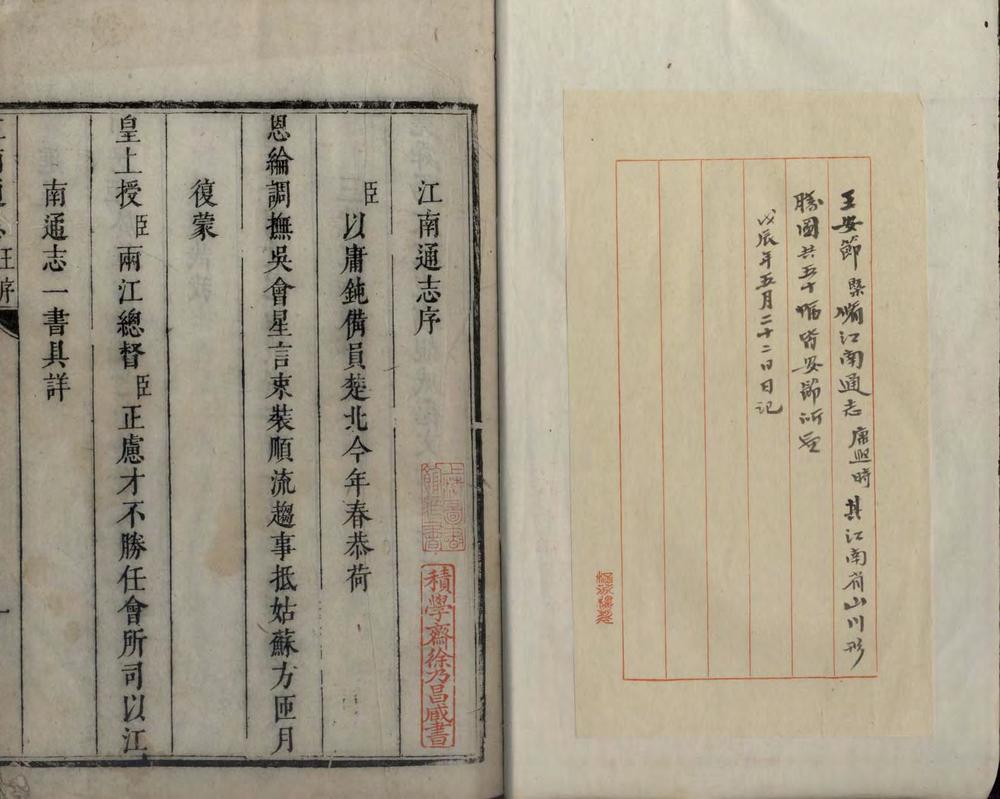 王安節槩脩江南通志康熙時其江南省山川形
勝圖共五十幅皆安節所画
戊辰年五月二十二日日记
江南通志序
臣以庸鈍備員楚北今年春恭荷
恩綸調撫吳會星言束裝順流趨事抵姑蘇方匝月
復蒙
皇上授臣兩江總督臣正慮才不勝任會所司以江
南通志一書具詳
積學齋徐乃昌臧書